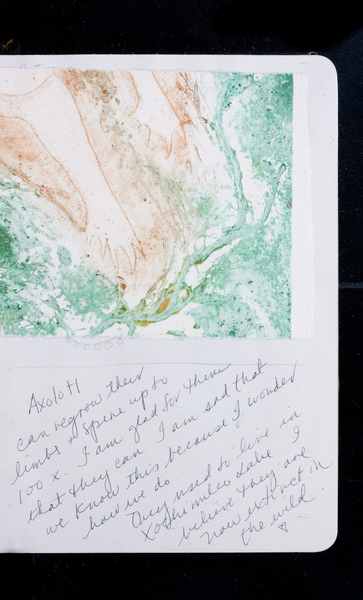 Axolotl
can regrow their
limbs & spine up to
100 x. I am glad for them
that they can I am sad that
we know this because I wonder
how we do.
They used to live in
Xochimilco Lake. I
believe they are
now extinct in
the wild.